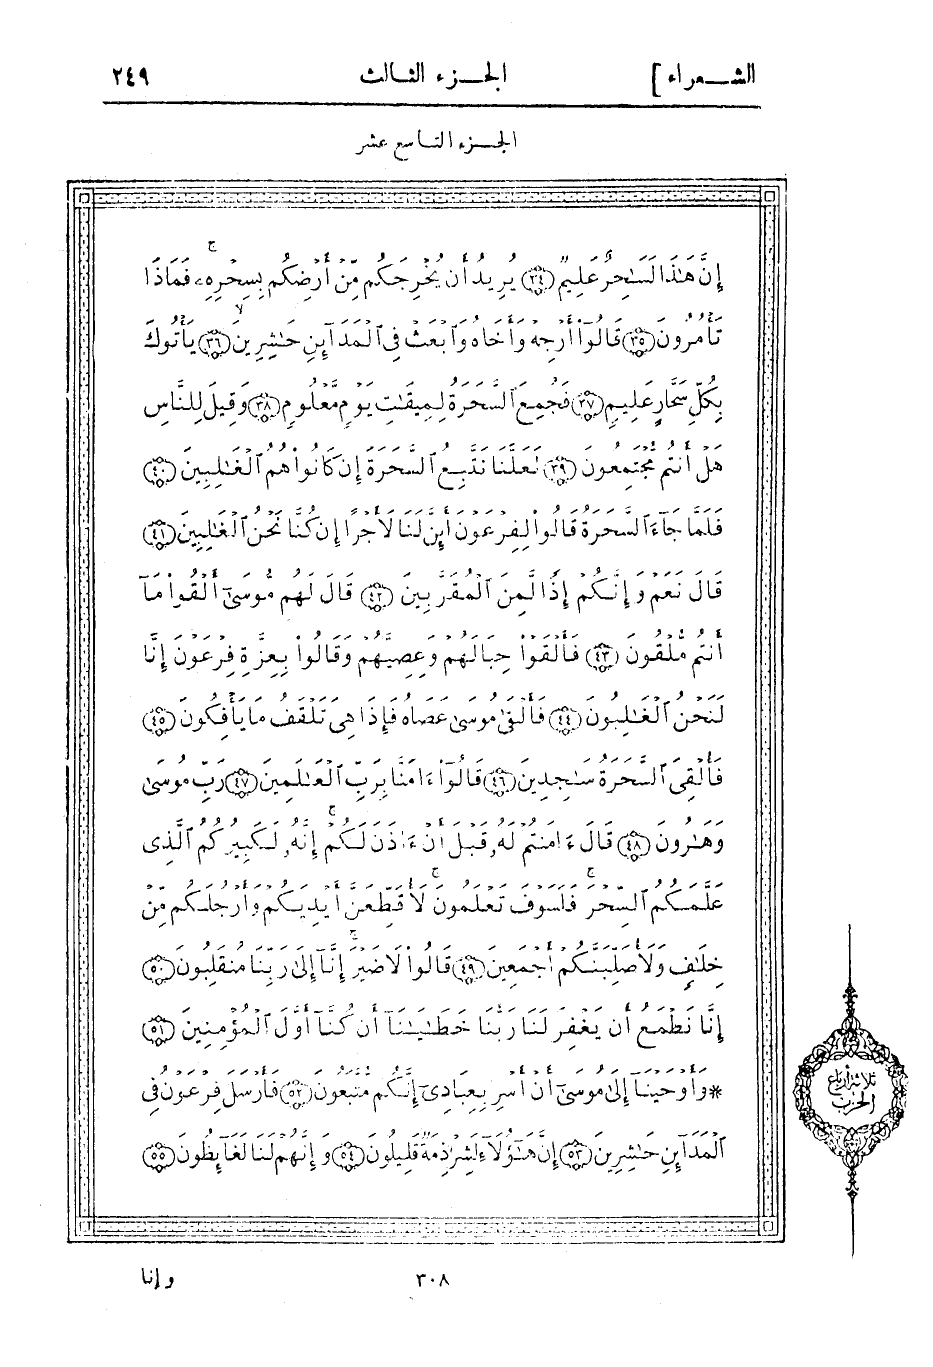 الشعراء ] الجزء الثالث ٢٤٩
الجزء التاسع عشر
إِنَّ هَٰذَا لَسَٰحِرٌ عَلِيمٌ ٣٤ يُرِيدُ أَن يُخْرِجَكُم مِّنْ أَرْضِكُم بِسِحْرِهِۦ فَمَاذَا
تَأْمُرُونَ ٣٥ قَالُوٓا۟ أَرْجِهْ وَأَخَاهُ وَٱبْعَثْ فِى ٱلْمَدَآئِنِ حَٰشِرِينَ ٣٦ يَأْتُوكَ
بِكُلِّ سَحَّارٍ عَلِيمٍ ٣٧ فَجُمِعَ ٱلسَّحَرَةُ لِمِيقَٰتِ يَوْمٍ مَّعْلُومٍ ٣٨ وَقِيلَ لِلنَّاسِ
هَلْ أَنتُم مُّجْتَمِعُونَ ٣٩ لَعَلَّنَا نَتَّبِعُ ٱلسَّحَرَةَ إِن كَانُوا۟ هُمُ ٱلْغَٰلِبِينَ ٤٠
فَلَمَّا جَآءَ ٱلسَّحَرَةُ قَالُوا۟ لِفِرْعَوْنَ أَئِنَّ لَنَا لَأَجْرًا إِن كُنَّا نَحْنُ ٱلْغَٰلِبِينَ ٤١
قَالَ نَعَمْ وَإِنَّكُمْ إِذًا لَّمِنَ ٱلْمُقَرَّبِينَ ٤٢ قَالَ لَهُم مُّوسَىٰٓ أَلْقُوا۟ مَآ
أَنتُم مُّلْقُونَ ٤٣ فَأَلْقَوْا۟ حِبَالَهُمْ وَعِصِيَّهُمْ وَقَالُوا۟ بِعِزَّةِ فِرْعَوْنَ إِنَّا
لَنَحْنُ ٱلْغَٰلِبُونَ ٤٤ فَأَلْقَىٰ مُوسَىٰ عَصَاهُ فَإِذَا هِىَ تَلْقَفُ مَا يَأْفِكُونَ ٤٥
فَأُلْقِىَ ٱلسَّحَرَةُ سَٰجِدِينَ ٤٦ قَالُوٓا۟ ءَامَنَّا بِرَبِّ ٱلْعَٰلَمِينَ ٤٧ رَبِّ مُوسَىٰ
وَهَٰرُونَ ٤٨ قَالَ ءَامَنتُمْ لَهُۥ قَبْلَ أَنْ ءَاذَنَ لَكُمْ إِنَّهُۥ لَكَبِيرُكُمُ ٱلَّذِى
عَلَّمَكُمُ ٱلسِّحْرَ فَلَسَوْفَ تَعْلَمُونَ لَأُقَطِّعَنَّ أَيْدِيَكُمْ وَأَرْجُلَكُم مِّنْ
خِلَٰفٍ وَلَأُصَلِّبَنَّكُمْ أَجْمَعِينَ ٤٩ قَالُوا۟ لَا ضَيْرَ إِنَّآ إِلَىٰ رَبِّنَا مُنقَلِبُونَ ٥٠
إِنَّا نَطْمَعُ أَن يَغْفِرَ لَنَا رَبُّنَا خَطَٰيَٰنَآ أَن كُنَّآ أَوَّلَ ٱلْمُؤْمِنِينَ ٥١
*وَأَوْحَيْنَآ إِلَىٰ مُوسَىٰٓ أَنْ أَسْرِ بِعِبَادِىٓ إِنَّكُم مُّتَّبَعُونَ ٥٢ فَأَرْسَلَ فِرْعَوْنُ فِى
ٱلْمَدَآئِنِ حَٰشِرِينَ ٥٣ إِنَّ هَٰٓؤُلَآءِ لَشِرْذِمَةٌ قَلِيلُونَ ٥٤ وَإِنَّهُمْ لَنَا لَغَآئِظُونَ ٥٥
ثلاثة أرباع
الحزب
٣٠٨ وإنا